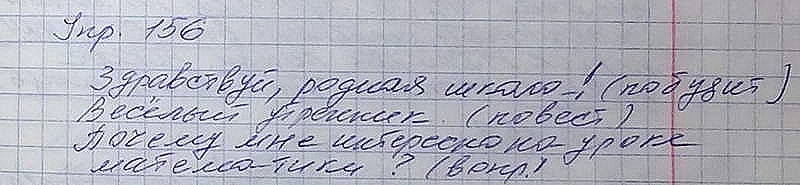 Упр. 156
Здравствуй, родная школа! (побудит)
Весёлый утренник. (повест)
Почему мне интересно на уроке
математики? (вопр.)